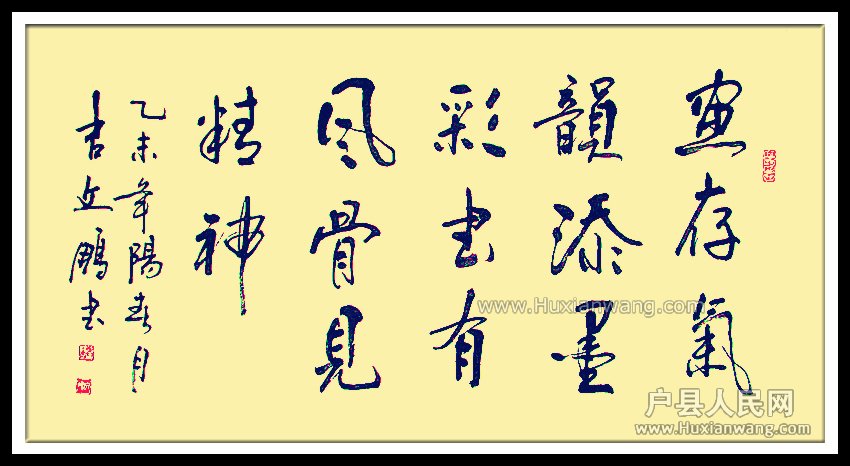 畫存氣
韻添墨
彩書有
風骨見
精神
乙未年陽春月
吉鵬書
www.Huxianwang.com
户县人民网
www.Huxianwang.com